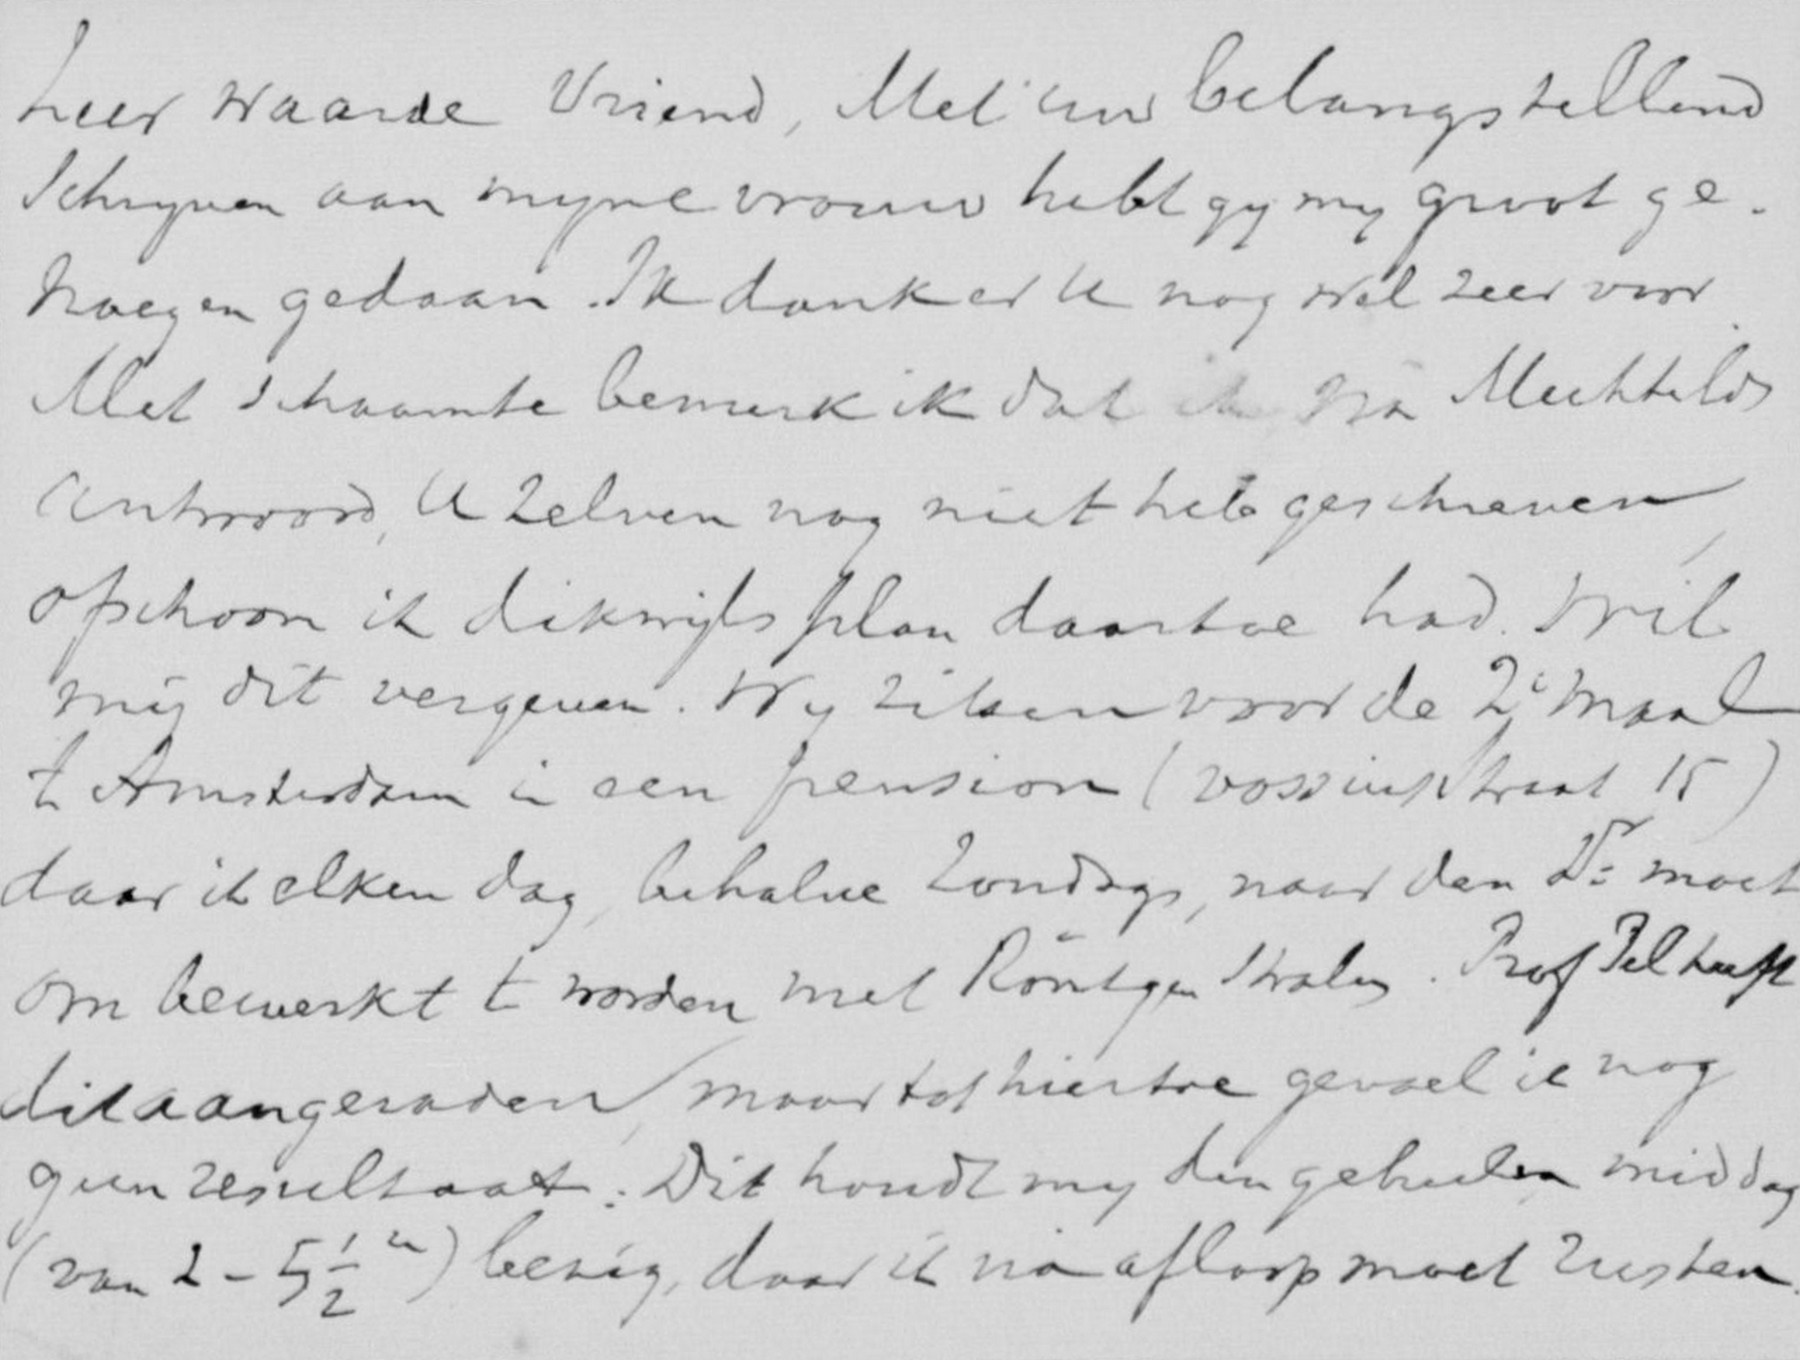 Zeer waarde Vriend, Met uw belangstellend
schryven aan myne vrouw hebt gy my groot ge-
noegen gedaan. Ik dank er U nog wel zeer voor.
Met schaamte bemerk ik dat ik na Mechtilds
antwoord, U zelven nog niet heb geschreven,
ofschoon ik dikwijls plan daartoe had. Wil
mij dit vergeven. Wy zitten voor de 2e maal
te Amsterdam in een pension (Vossiusstraat 15)
daar ik elken dag, behalve Zondags, naar den Dr moet
om bewerkt te worden met Röntgen stralen. Prof Pel heeft
dit aangeraden, maar tot hiertoe gevoel ik nog
geen resultaat. Dit houdt my den geheelen middag
(van 2 - 5 1/2 u) bezig, daar ik na afloop moet rusten.